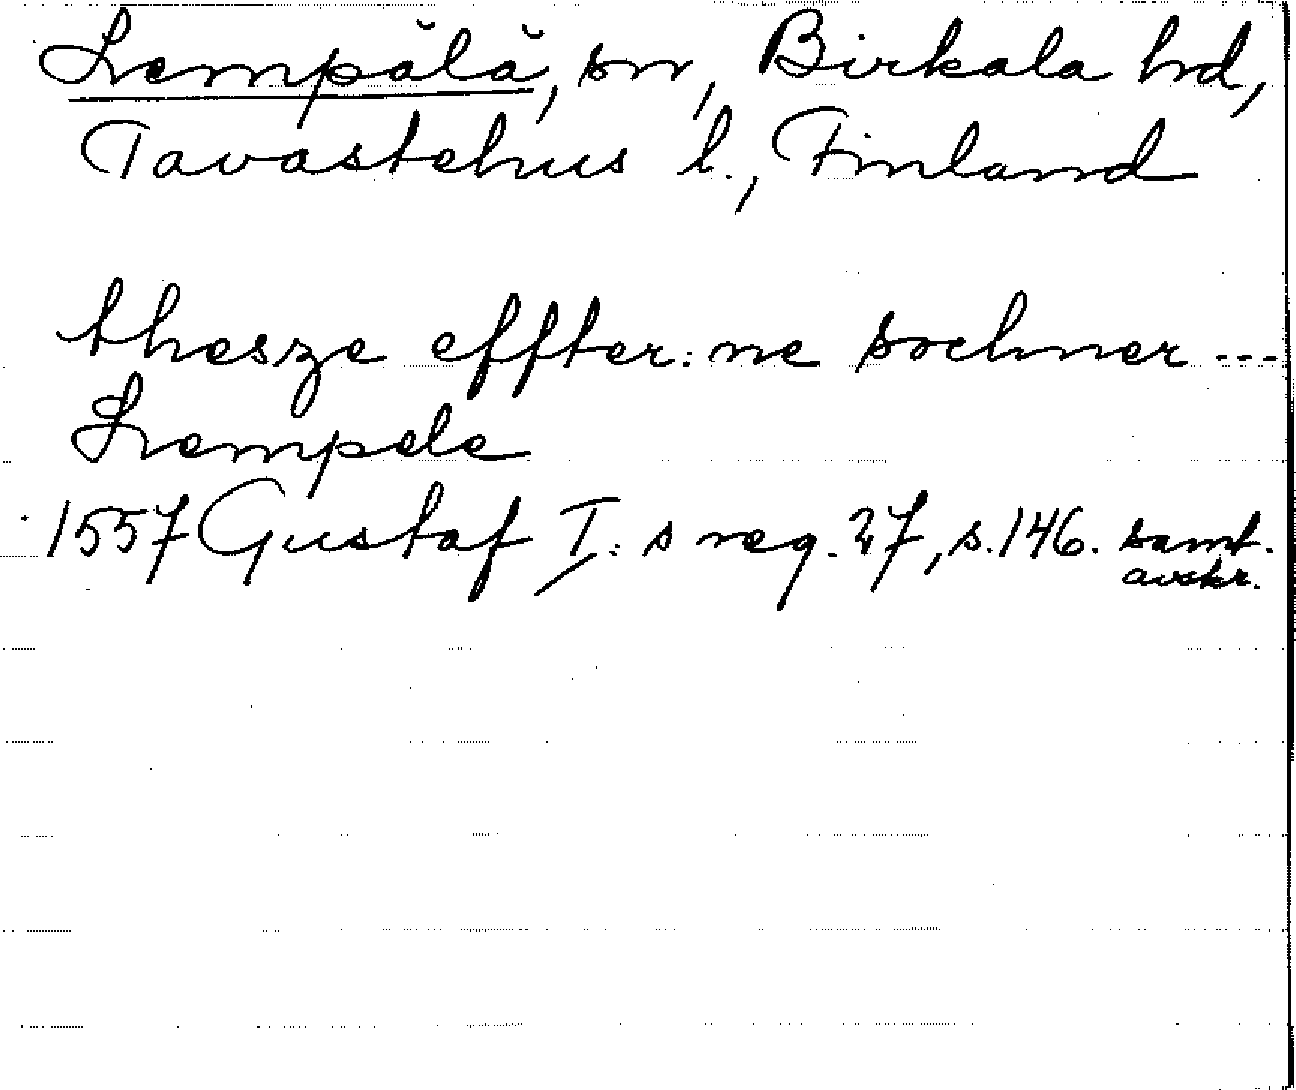 Lempälä, sn, Birkala hd,
Tavastehus l., Finland
thesze effter:ne sochner ---
Lempele
1557 Gustaf I:s reg. 27, s.146. samt.
avskr.